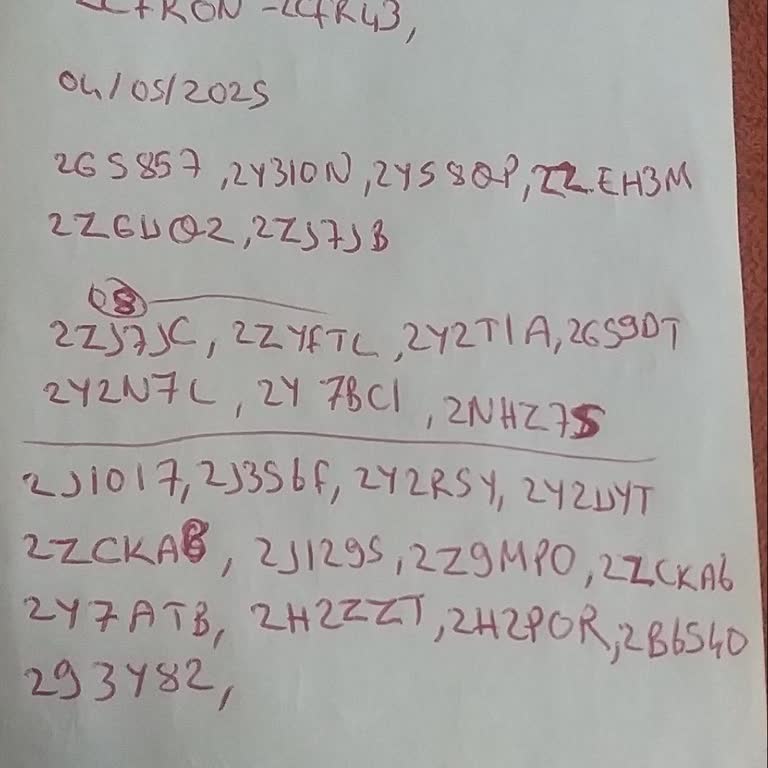 04/05/2025
2GS857, 2Y310N, 2YS8QP, ZZ.EH3M
2ZGUQ2, 2ZJ7JB
08
2ZJ7JC, 2ZYFTL, 2Y2T1A, 2GS9DT
2Y2N7L, 2Y7BC1, 2NHZ7S
2J1017, 2J3S6F, 2Y2RSY, 2Y2UYT
2ZCKAB, 2J129S, 2Z9MPO, 2ZCKA6
2Y7ATB, 2H2ZZT, 2H2POR, 2B6S40
293Y82,